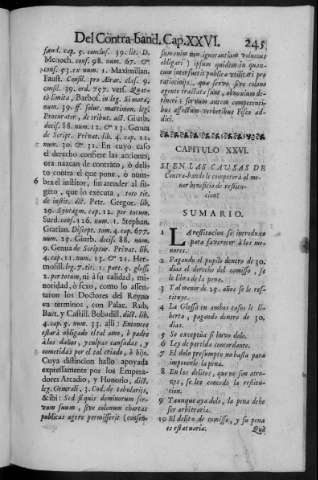 Del Contra-band. Cap. XXVI.
245
fand. cap. 5. conclus. 39. lit. D.
Menoch. conf. 98. num. 67. &
conf. 93. ex num. 1. Maximilian.
Faust. Consil. pro Ærar. class. 9.
consf. 39. ord. 757. vers. Quarto
limita, Barbos. in leg. Si mora,
num. 39. ff. solut. matrimon. legi
Procurator, de tribut. act. Giurb.
decis. 88. num. 12. & 13. Genua
de Script. Privat. lib. 4. cap. 12.
num. 30. & 31. En cuyo caso
el derecho confiere las acciones,
ora nazcan de contrato, ò delito
contra el que pone, ò nombra
el institor, sin atender al sugeto,
que lo executa, toto tit.
de instit. act. Petr. Gregor. lib.
29. Syntagm. cap. 12. per totum.
Surd. conf. 126. num. 1. Stephan.
Gratian. Discept. tom. 4. cap. 677.
num. 25. Giurb. decis. 88. num.
9. Genua de Scriptur. Privat. lib.
4. cap. 11. num. 13. & 21. Hermosill.
leg. 7. tit. 11. part. 5. gloss.
2. per totum, ni à la calidad, minoridad,
ò sexo, como lo assentaron
los Doctores del Reyno
en terminos, con Palac. Rub.
Bart. y Castill. Bobadill. dict. lib.
4. cap. 5. num. 33. alli: Entonces
estarà obligado el tal amo, ò padre
à los daños, y culpas causadas, y
cometidas por el tal criado, ò hijo.
Cuya distincion hallo aprovada
expressamente por los Emperadores
Arcadio, y Honorio, dict.
leg. Generali, 3. Cod. de tabularijs,
& ibi: Sed si quis dominorum servum
suum, sive colonum chartas
publicas agere permisserit (consensum
6
sumenim non ignorantiam volumus
obligari) ipsum quidem in quantum
interfuerit publicæ utilitati pro
ratiocinijs, quæ servo, sive colono
agente tractata sunt, obnoxium detineri:
servum autem competentibus
affectum verberibus Fisco addici.
CAPITULO XXVI.
SI EN LAS CAUSAS DE
Contra-bando le competerà al menor
beneficio de restitucion?
SUMARIO.
1 LA restitucion se introduxo
para favorecer à los menores.
2 Pagando el pupilo dentro de 30.
dias el derecho del comisso, se
le libra de la pena.
3 Tal menor de 25. años se le restituye.
4 La Glossa en ambos casos le liberta,
pagando dentro de 30.
dias.
5 Se exceptùa si huvo dolo.
6 Ley de partida concordante.
7 El dolo presumpto no basta para
imponerle la pena.
8 En los delitos, que no son atrozes,
se les concede la restitucion.
9 Y aunque aya dolo, la pena debe
ser arbitraria.
10 El delito de comisso, y su pena
es estatuaria.